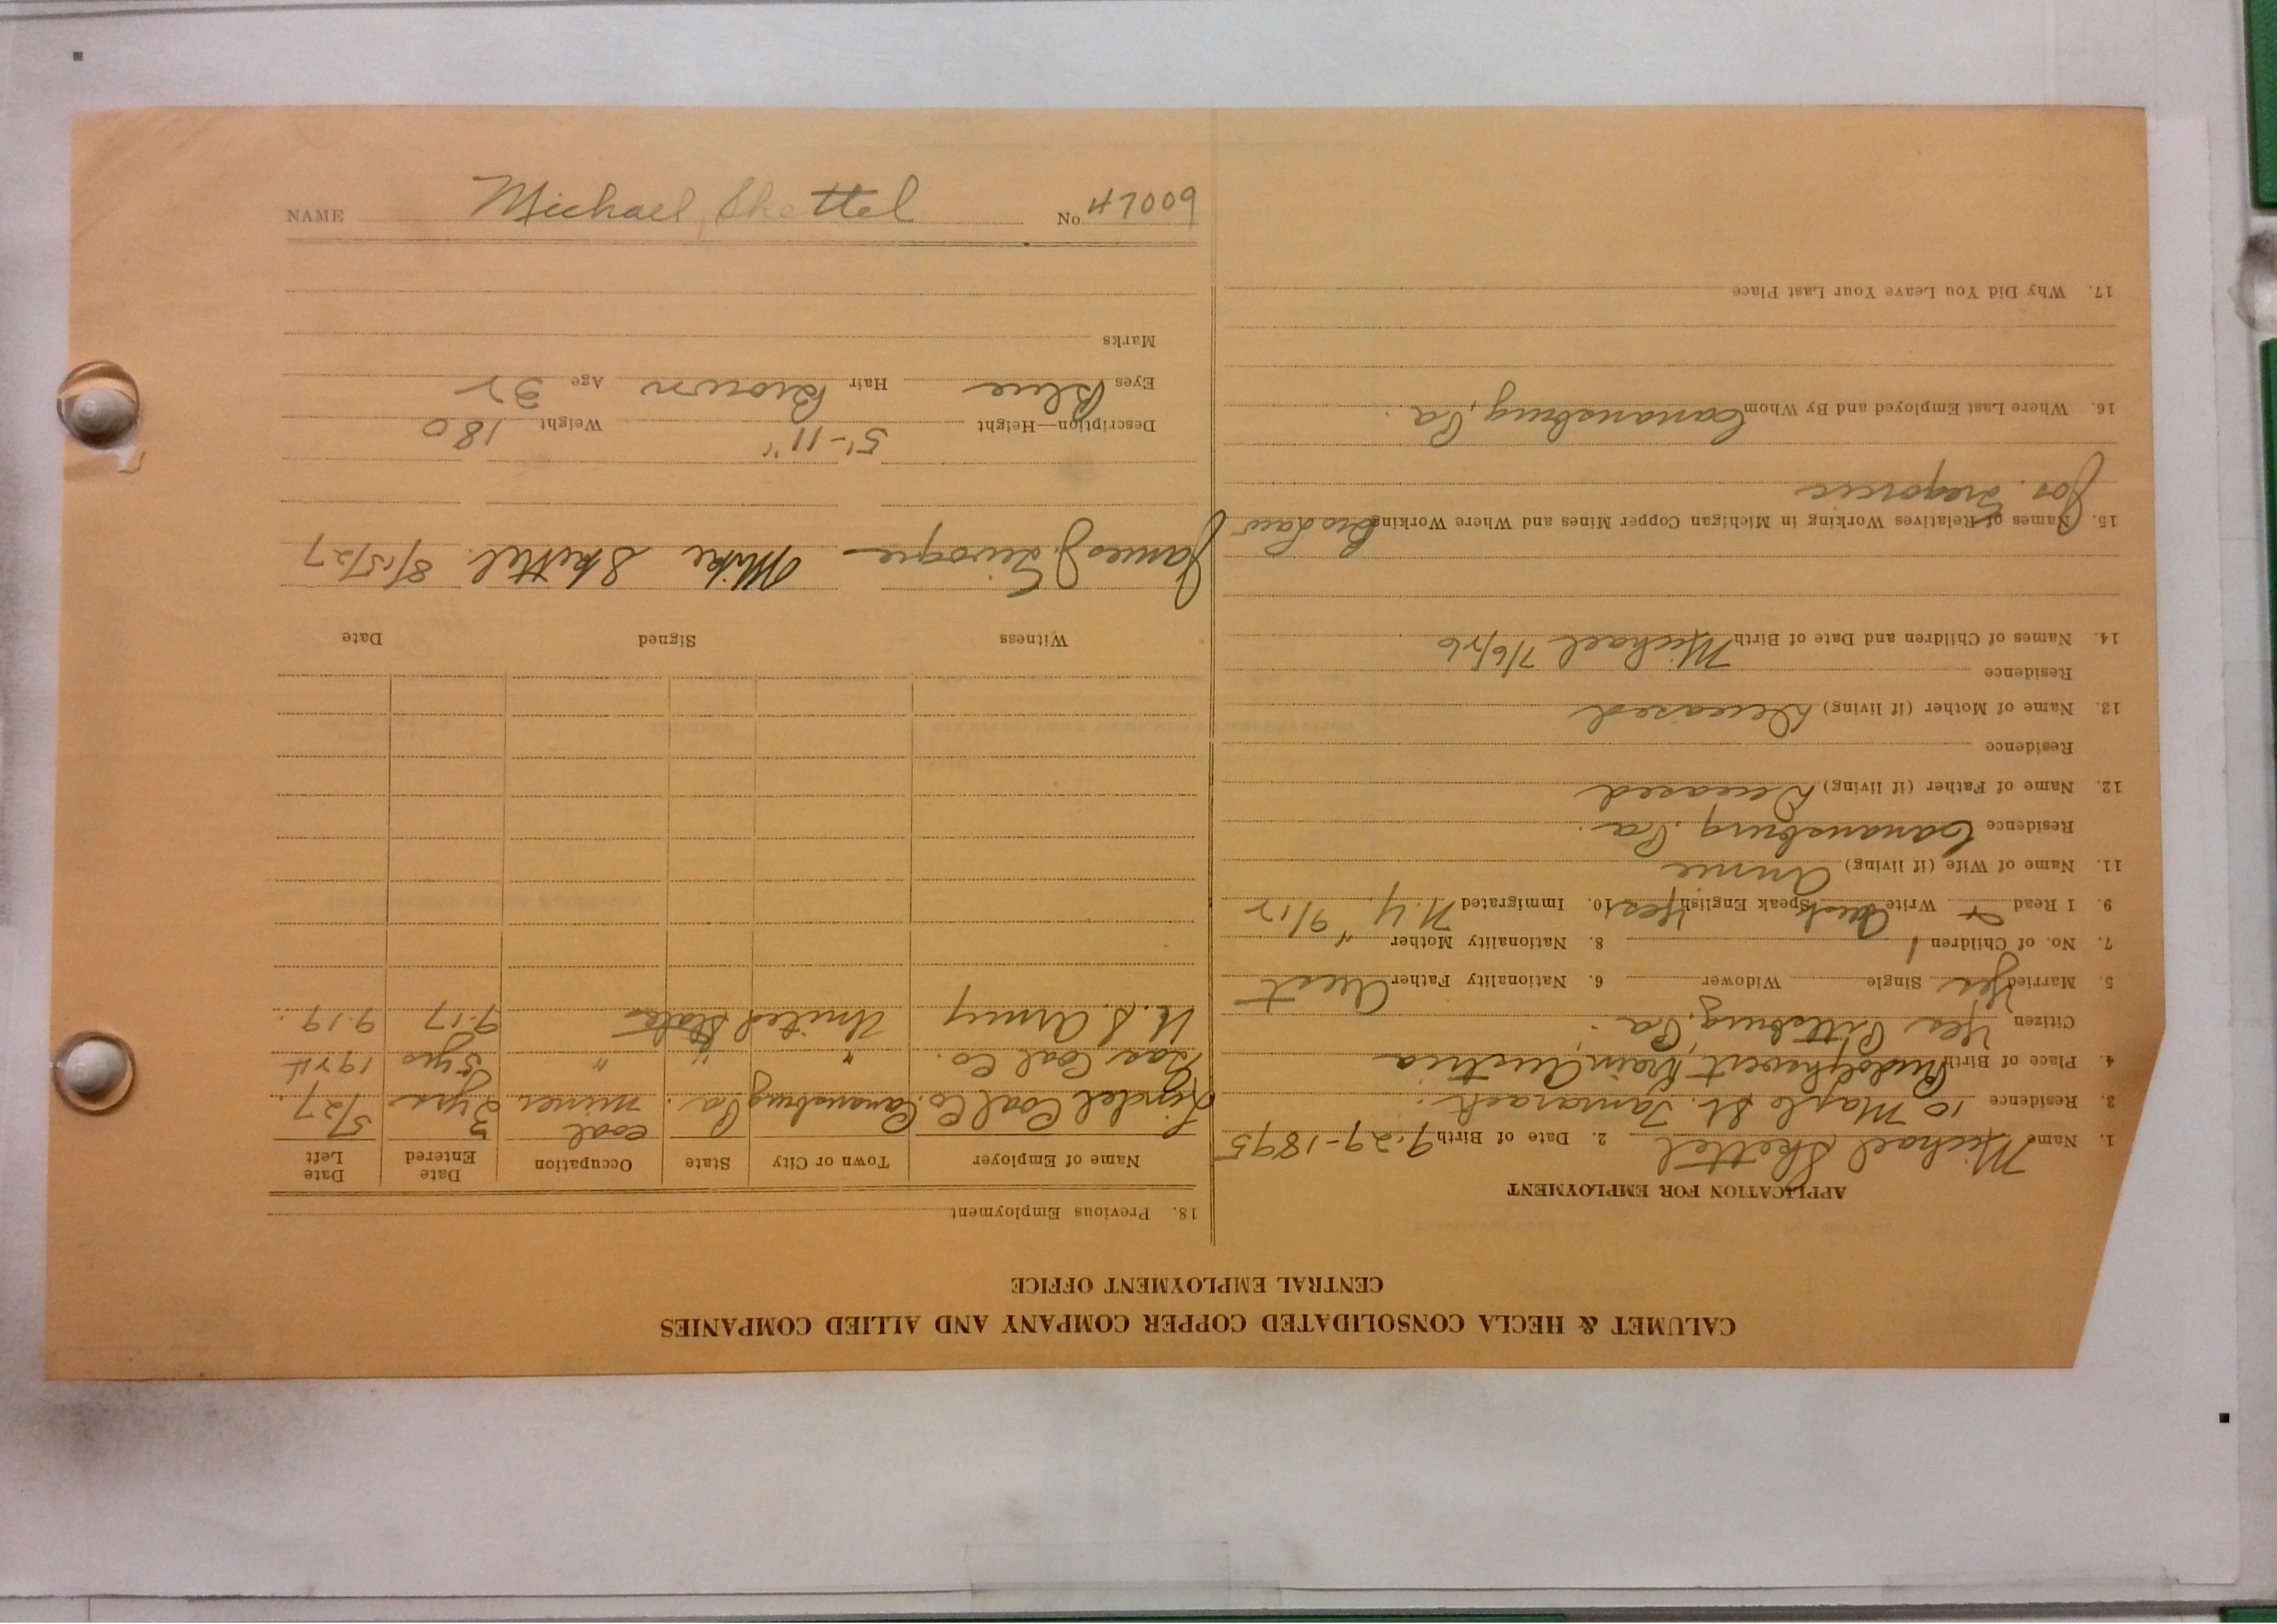 CALUMET & HECLA CONSOLIDATED COPPER COMPANY AND ALLIED COMPANIES
CENTRAL EMPLOYMENT OFFICE
APPLICATION FOR EMPLOYMENT
1. Name Michael Skettel 2. Date of Birth 9-29-1895
3. Residence 10 Maple St. Tamarack.
4. Place of Birth Krain Austria
Citizen Yes Pittsburg, Pa.
5. Married Yes Single Widower 6. Nationality Father Aust
7. No. of Children 1 8. Nationality Mother "
9. I Read Write Aust Speak English Yes 10. Immigrated N.Y. 9/12
11. Name of Wife (if living) Annie
Residence Canonsburg, Pa.
12. Name of Father (if living) Deceased
Residence
13. Name of Mother (if living) Deceased
Residence
14. Names of Children and Date of Birth Michael 7/6/26
15. Names of Relatives Working in Michigan Copper Mines and Where Working
Jos.
16. Where Last Employed and By Whom Canonsburg, Pa.
17. Why Did You Leave Your Last Place
18. Previous Employment
Name of Employer Town or City State Occupation Date Entered Date Left
Coal Co. Canonsburg Pa. coal miner 3 yrs 5/27.
Coal Co. " " " 5 yrs 1924
U.S. Army United States 9-17 9-19.
Witness Signed Date
James J. Mike Skettel. 8/15/27
Description—Height 5'-11" Weight 180
Eyes Blue Hair Brown Age 32
Marks
NAME Michael Skettel No 47009